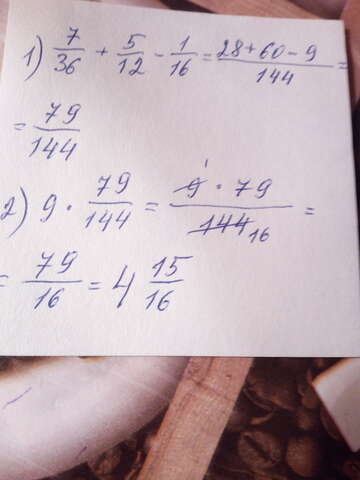 1) 7/36 + 5/12 - 1/16 = 28+60-9/144 =
= 79/144
2) 9 · 79/144 = 9^1 · 79/144 16 =
= 79/16 = 4 15/16